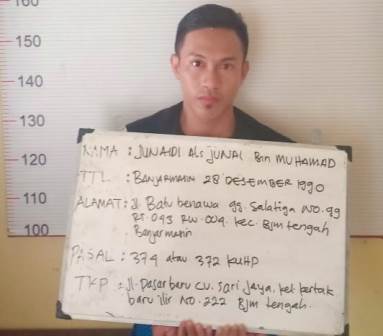 160
150
140
130
120
110
100
NAMA : JUNAIDI Als JUNAI Bin MUHAMAD
TTL : BANJARMASIN 28 DESEMBER 1990
ALAMAT : Jl. Batu benawa gg. Salatiga NO. 99
RT. 043 RW. 004 kec. Bjm tengah
Banjarmasin
PASAL : 374 atau 372 KUHP
TKP : Jl. Pasar baru CV. Sari Jaya, kel. kertak
baru ilir NO. 222 Bjm tengah.